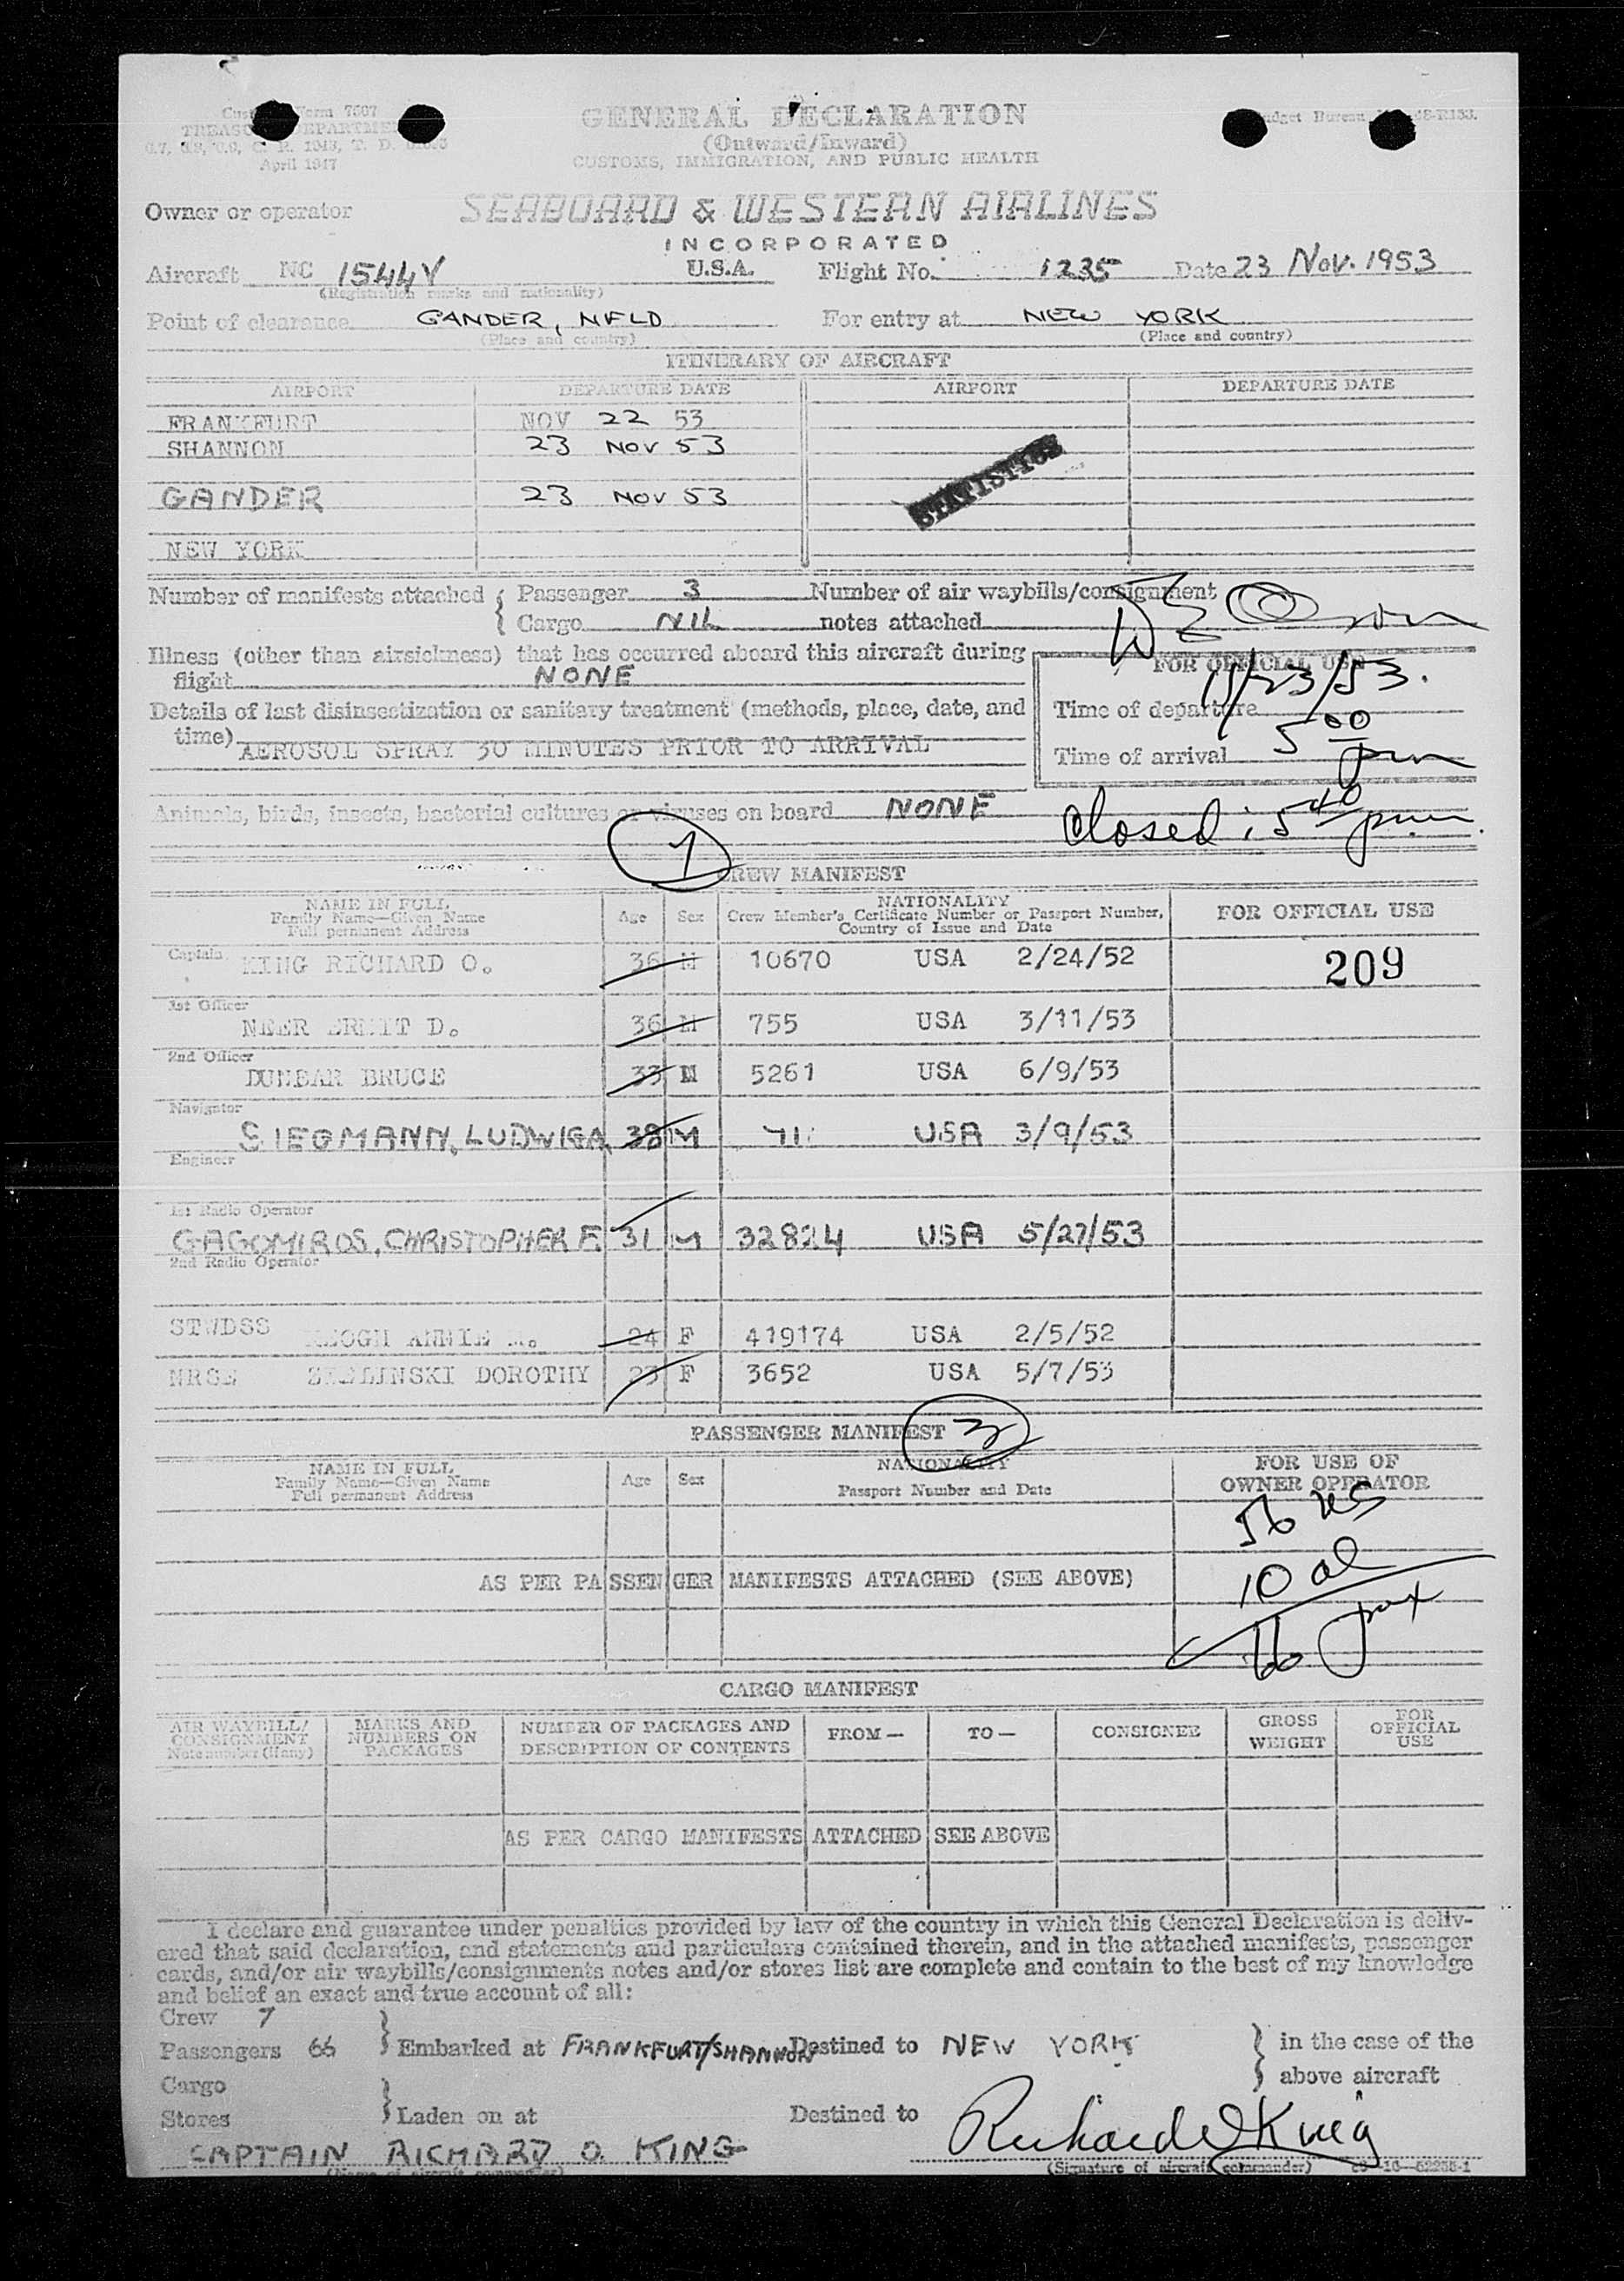 Customs Form 7507
TREASURY DEPARTMENT
April 1947
GENERAL DECLARATION
(Outward/Inward)
CUSTOMS, IMMIGRATION, AND PUBLIC HEALTH
Budget Bureau
Owner or operator SEABOARD & WESTERN AIRLINES
INCORPORATED
Aircraft NC 1544V U.S.A. Flight No. 1235 Date 23 Nov. 1953
(Registration marks and nationality)
Point of clearance GANDER, NFLD For entry at NEW YORK
(Place and country) (Place and country)
ITINERARY OF AIRCRAFT
AIRPORT DEPARTURE DATE AIRPORT DEPARTURE DATE
FRANKFURT NOV 22 53
SHANNON 23 NOV 53
STATISTICS
GANDER 23 NOV 53
NEW YORK
Number of manifests attached { Passenger 3 Number of air waybills/consignment
Cargo NIL notes attached
Illness (other than airsickness) that has occurred aboard this aircraft during
flight NONE
FOR OFFICIAL USE
11/23/53.
Details of last disinsectization or sanitary treatment (methods, place, date, and
time) AEROSOL SPRAY 30 MINUTES PRIOR TO ARRIVAL
Time of departure
Time of arrival 5 00 pm
Animals, birds, insects, bacterial cultures or viruses on board NONE
Closed: 5 40 p.m.
7
CREW MANIFEST
NAME IN FULL
Family Name—Given Name
Full permanent Address
Age Sex
NATIONALITY
Crew Member's Certificate Number or Passport Number,
Country of Issue and Date
FOR OFFICIAL USE
Captain KING RICHARD O. 36 M 10670 USA 2/24/52 209
1st Officer
NEER ERMIT D. 36 M 755 USA 3/11/53
2nd Officer
DUNBAR BRUCE 33 M 5261 USA 6/9/53
Navigator
SIEGMANN, LUDWIG A 38 M 71 USA 3/9/53
Engineer
1st Radio Operator
GAGOMIROS, CHRISTOPHER F. 31 M 32824 USA 5/27/53
2nd Radio Operator
STWDSS KEOGH ANNIE M. 24 F 419174 USA 2/5/52
NRSE ZIELINSKI DOROTHY 23 F 3652 USA 5/7/53
PASSENGER MANIFEST 3
NAME IN FULL
Family Name—Given Name
Full permanent Address
Age Sex
NATIONALITY
Passport Number and Date
FOR USE OF
OWNER OPERATOR
56 us
10 al
66 pax
AS PER PASSENGER MANIFESTS ATTACHED (SEE ABOVE)
CARGO MANIFEST
AIR WAYBILL/
CONSIGNMENT
Note number (if any)
MARKS AND
NUMBERS ON
PACKAGES
NUMBER OF PACKAGES AND
DESCRIPTION OF CONTENTS
FROM— TO— CONSIGNEE
GROSS
WEIGHT
FOR
OFFICIAL
USE
AS PER CARGO MANIFESTS ATTACHED SEE ABOVE
I declare and guarantee under penalties provided by law of the country in which this General Declaration is deliv-
ered that said declaration, and statements and particulars contained therein, and in the attached manifests, passenger
cards, and/or air waybills/consignments notes and/or stores list are complete and contain to the best of my knowledge
and belief an exact and true account of all:
Crew 7
Passengers 66 } Embarked at FRANKFURT/SHANNON Destined to NEW YORK } in the case of the
above aircraft
Cargo
Stores } Laden on at Destined to
CAPTAIN RICHARD O. KING Richard O King
(Name of aircraft commander) (Signature of aircraft commander)